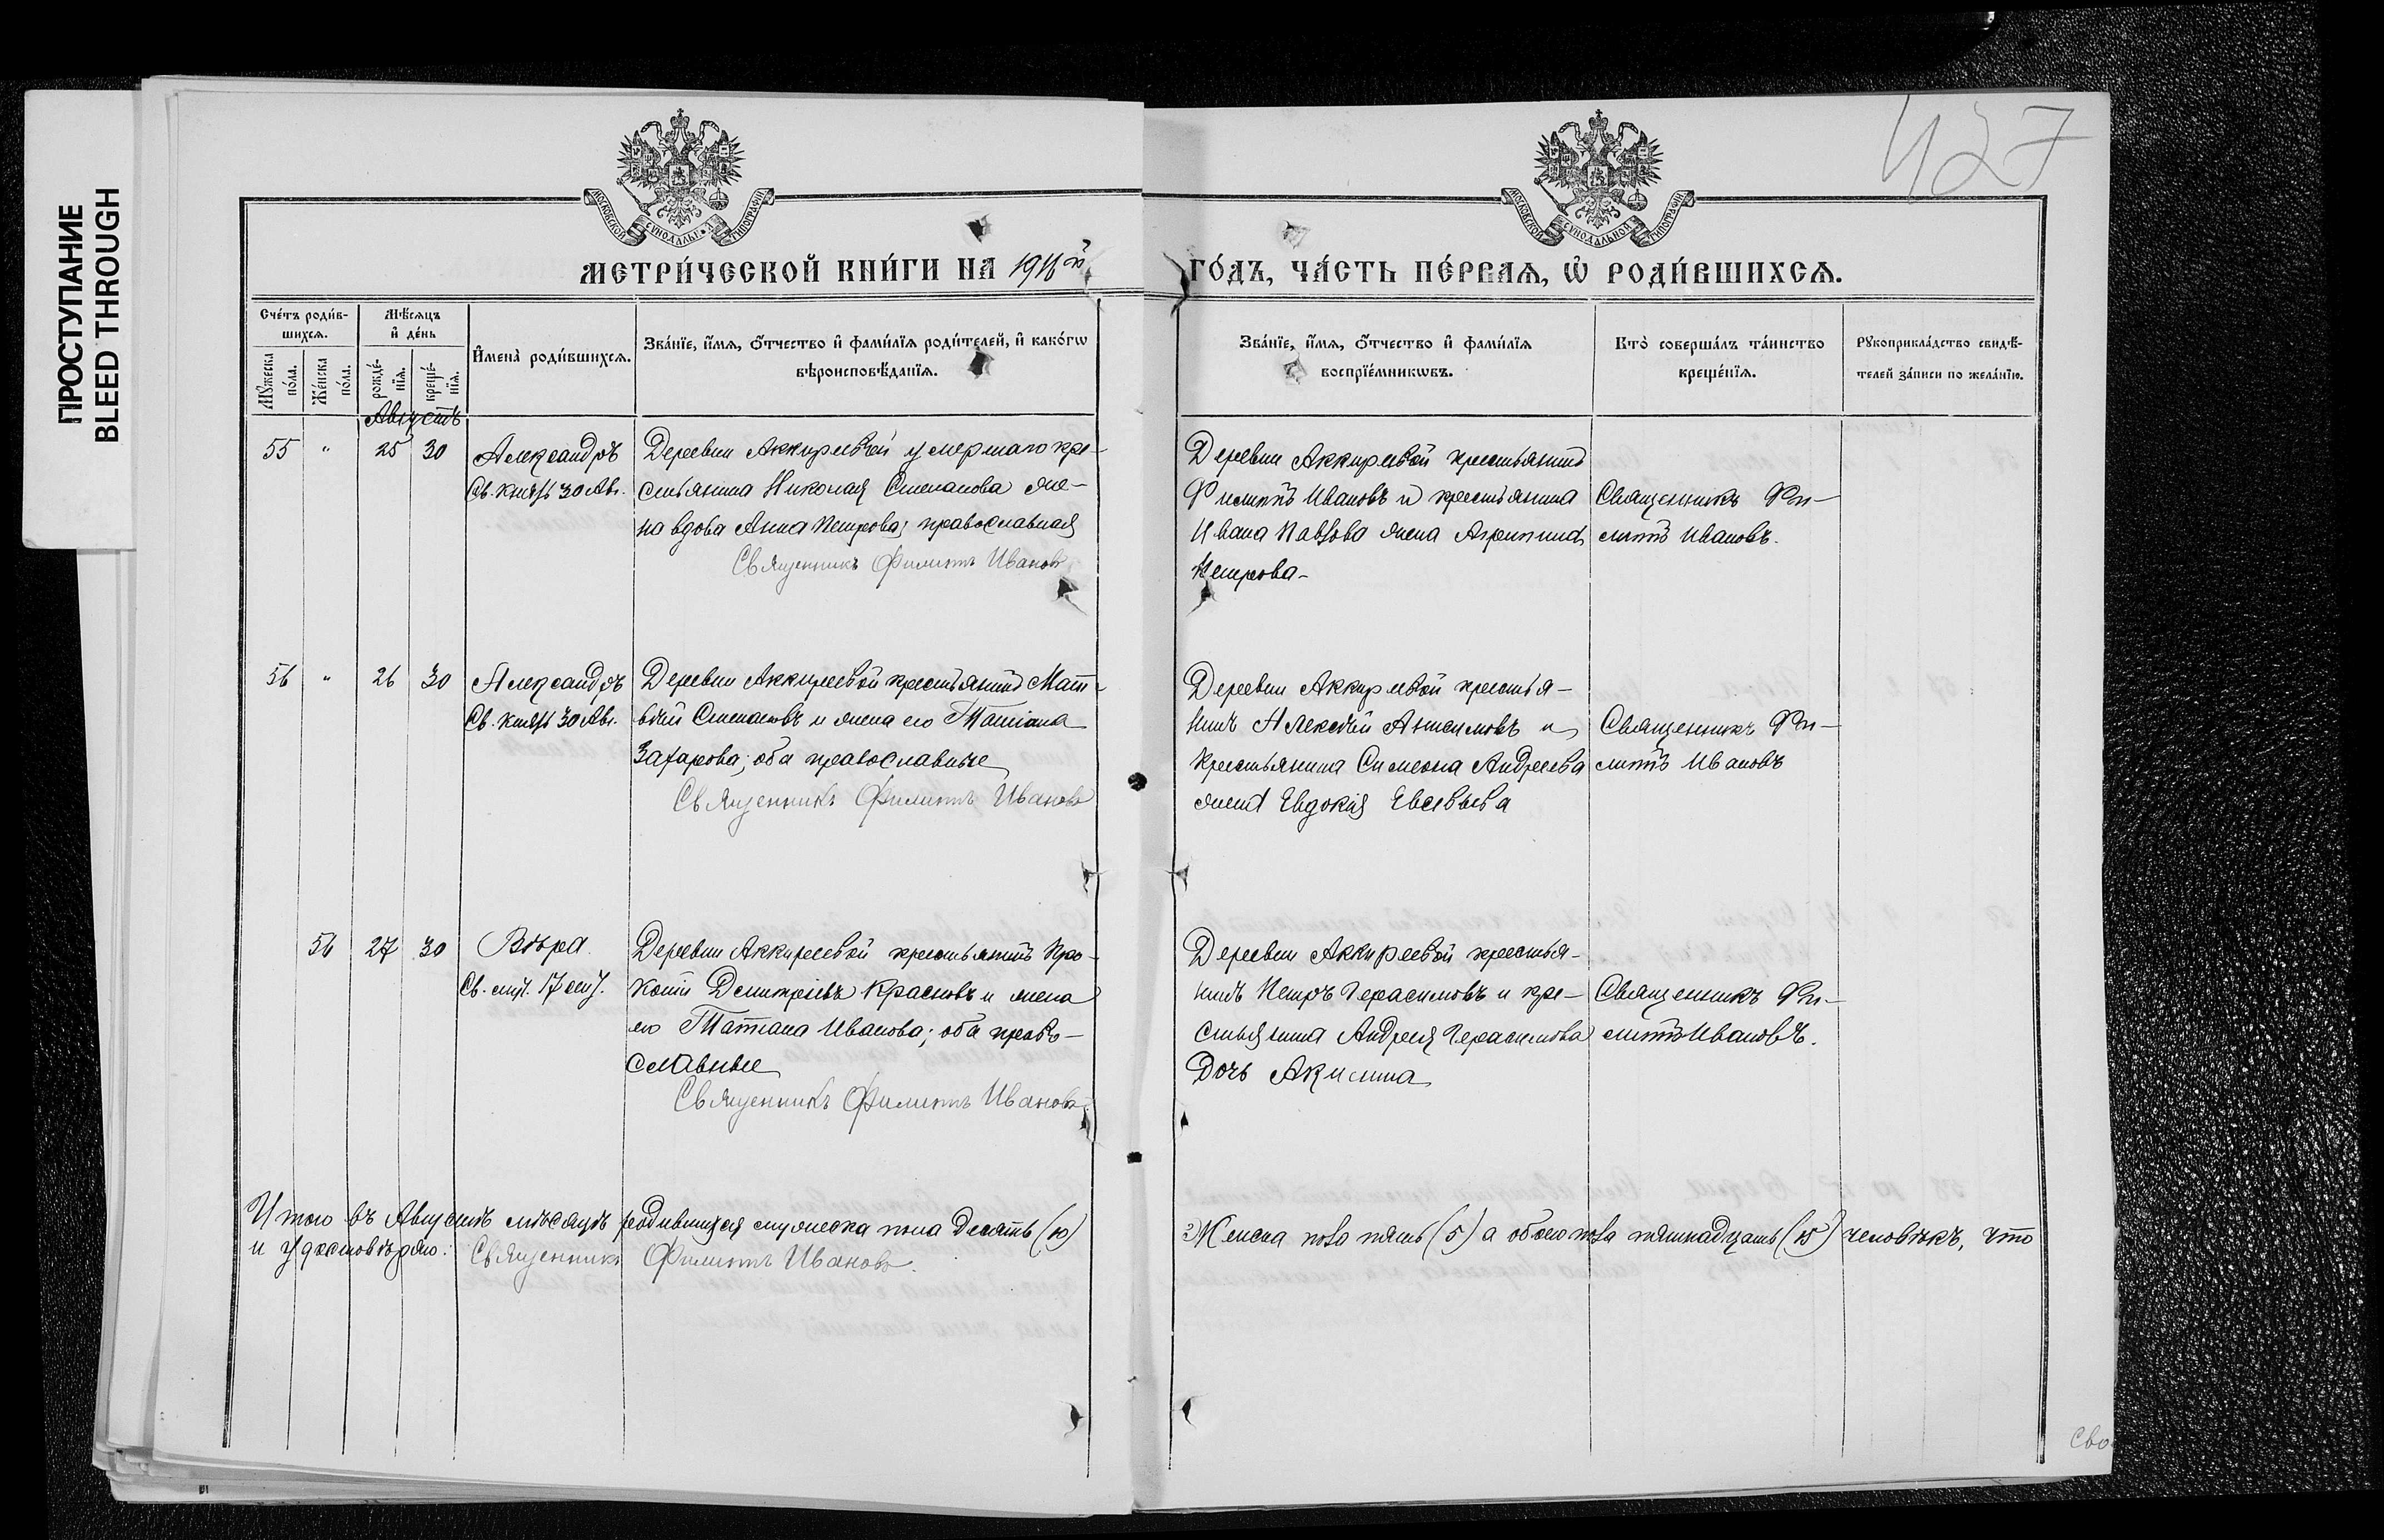 ПРОСТУПАНИЕ
BLEED THROUGH
427
МОСКОВСКОЙ СѴНОДАЛЬНОЙ ТИПОГРАФІИ
МОСКОВСКОЙ СѴНОДАЛЬНОЙ ТИПОГРАФІИ
МЕТРИ́ЧЕСКОЙ КНИ́ГИ НА
ГО́ДЪ, ЧА́СТЬ ПЕ́РВАѦ, Ѽ РОДИ́ВШИХСѦ.
Сче́тъ роди́в-
шихсѧ.
Мѣ́сѧцъ
и҆ де́нь
Мꙋ́жеска
по́ла.
Же́нска
по́ла.
рожде́-
нїѧ.
креще́-
нїѧ.
И҆мена̀ роди́вшихсѧ.
Зва́нїе, и҆́мѧ, ѻ҆́тчество и҆ фами́лїѧ роди́телей, и҆ како́гѡ
вѣроисповѣ́данїѧ.
Зва́нїе, и҆́мѧ, ѻ҆́тчество и҆ фами́лїѧ
воспрїе́мникѡвъ.
Кто̀ соверша́лъ та́инство
креще́нїѧ.
Рꙋкоприкла́дство свидѣ́-
телей за́писи по жела́нїю.
Августъ
55 " 25 30
Александръ
Св. князь 30 Авг.
Деревни Аккиреевой умершаго кре-
стьянина Николая Степанова же-
на вдова Анна Петрова; православная
Священникъ Филиппъ Ивановъ
Деревни Аккиреевой крестьянинъ
Филиппъ Ивановъ и крестьянина
Ивана Павлова жена Агриппина
Петрова-
Священникъ Фи-
липпъ Ивановъ.
56 " 26 30
Александръ
Св. князь 30 Авг.
Деревни Аккиреевой крестьянинъ Мат-
вѣй Степановъ и жена его Татіана
Захарова; оба православные
Священникъ Филиппъ Ивановъ
Деревни Аккиреевой крестья-
нинъ Алексѣй Анисимовъ и
крестьянина Симеона Андреева
жена Евдокія Евсевьева
Священникъ Фи-
липпъ Ивановъ
56 27 30
Вѣра.
Св. муч. 17 сент.
Деревни Аккиреевой крестьянинъ Про-
копій Димитріевъ Красновъ и жена
его Татіана Иванова; оба право-
славные
Священникъ Филиппъ Ивановъ.
Деревни Аккиреевой крестья-
нинъ Петръ Герасимовъ и кре-
стьянина Андрея Герасимова
дочь Акилина
Священникъ Фи-
липпъ Ивановъ.
Итого въ Августѣ мѣсяцѣ родившихся мужеска пола десять (10)
Женска пола пять (5) а обоего пола пятнадцать (15) человѣкъ, что
и удостовѣряю: Священникъ Филиппъ Ивановъ.
Сво